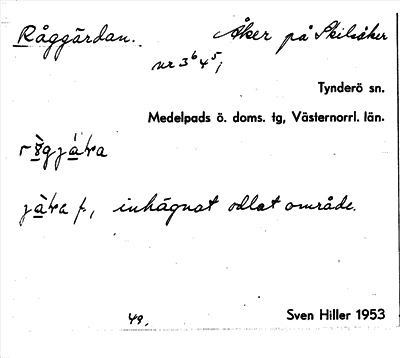 Råggärdan. Åker på Skilsåker
nr 3⁶ 4⁵,
Tynderö sn.
Medelpads ö. doms. tg, Västernorrl. län.
inhägnat odlat område.
49.
Sven Hiller 1953